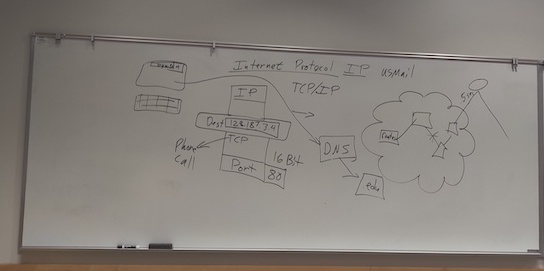 Internet Protocol IP USMail
TCP/IP
IP
Dest 128.187.3.4
TCP
Phone
Call
16 Bit
Port 80
DNS
edu